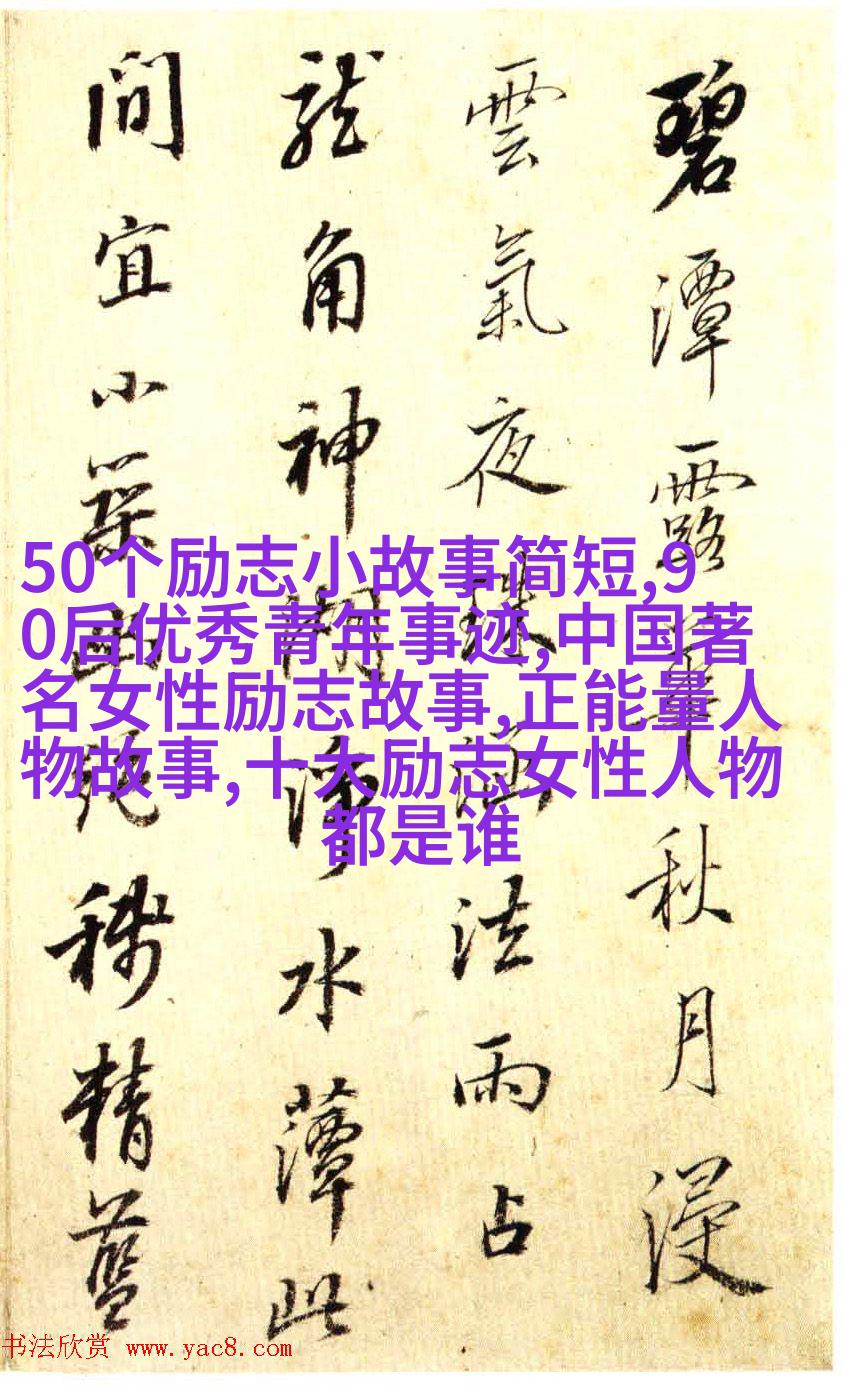 碧潭露華秋月浸
雲氣夜
法雨占
龍角神湖淨水蕈此
間宜小築幽絕稱精藍
50个励志小故事简短,9
0后优秀青年事迹,中国著
名女性励志故事,正能量人
物故事,十大励志女性人物
都是谁
书法欣赏 www.yac8.com